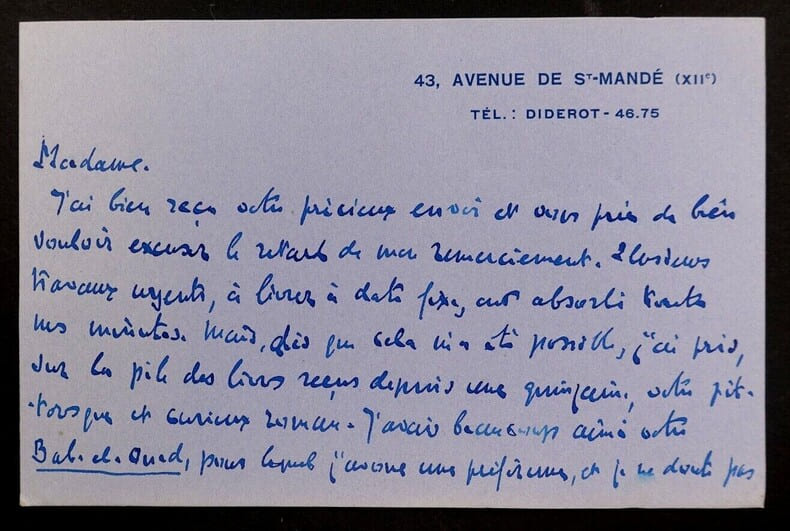 43, AVENUE DE Sᵀ-MANDÉ (XIIᵉ)
TÉL. : DIDEROT - 46.75
Madame.
J'ai bien reçu votre précieux envoi et vous prie de bien
vouloir excuser le retard de mon remerciement. Plusieurs
travaux urgents, à livrer à date fixe, ont absorbé toutes
mes minutes. Mais, dès que cela m'a été possible, j'ai pris,
sur la pile des livres reçus depuis une quinzaine, votre pit-
-toresque et curieux roman. J'avais beaucoup aimé votre
Bab-el-Oued, pour lequel j'avoue une préférence, et je ne doute pas